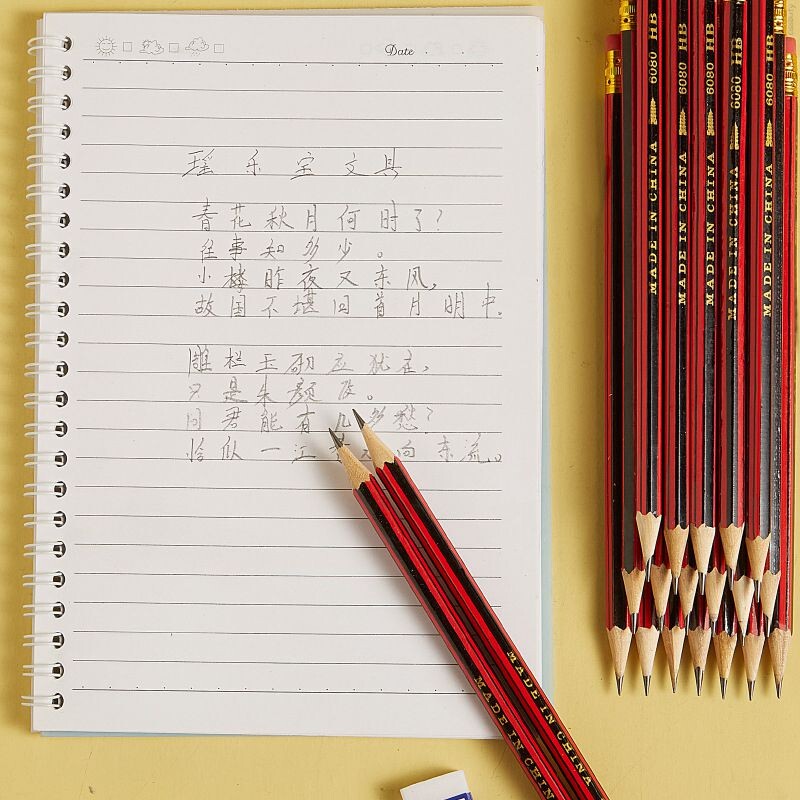 Date
瑶乐宝文具
春花秋月何时了?
往事知多少。
小楼昨夜又东风,
故国不堪回首月明中.
雕栏玉砌应犹在,
只是朱颜改。
问君能有几多愁?
恰似一江 向东流。
MADE IN CHINA 6080 HB
MADE IN CHINA 6080 HB
MADE IN CHINA 6080 HB
MADE IN CHINA 6080 HB
MADE IN CHINA 6080 HB
MADE IN CHINA
MADE IN CHINA